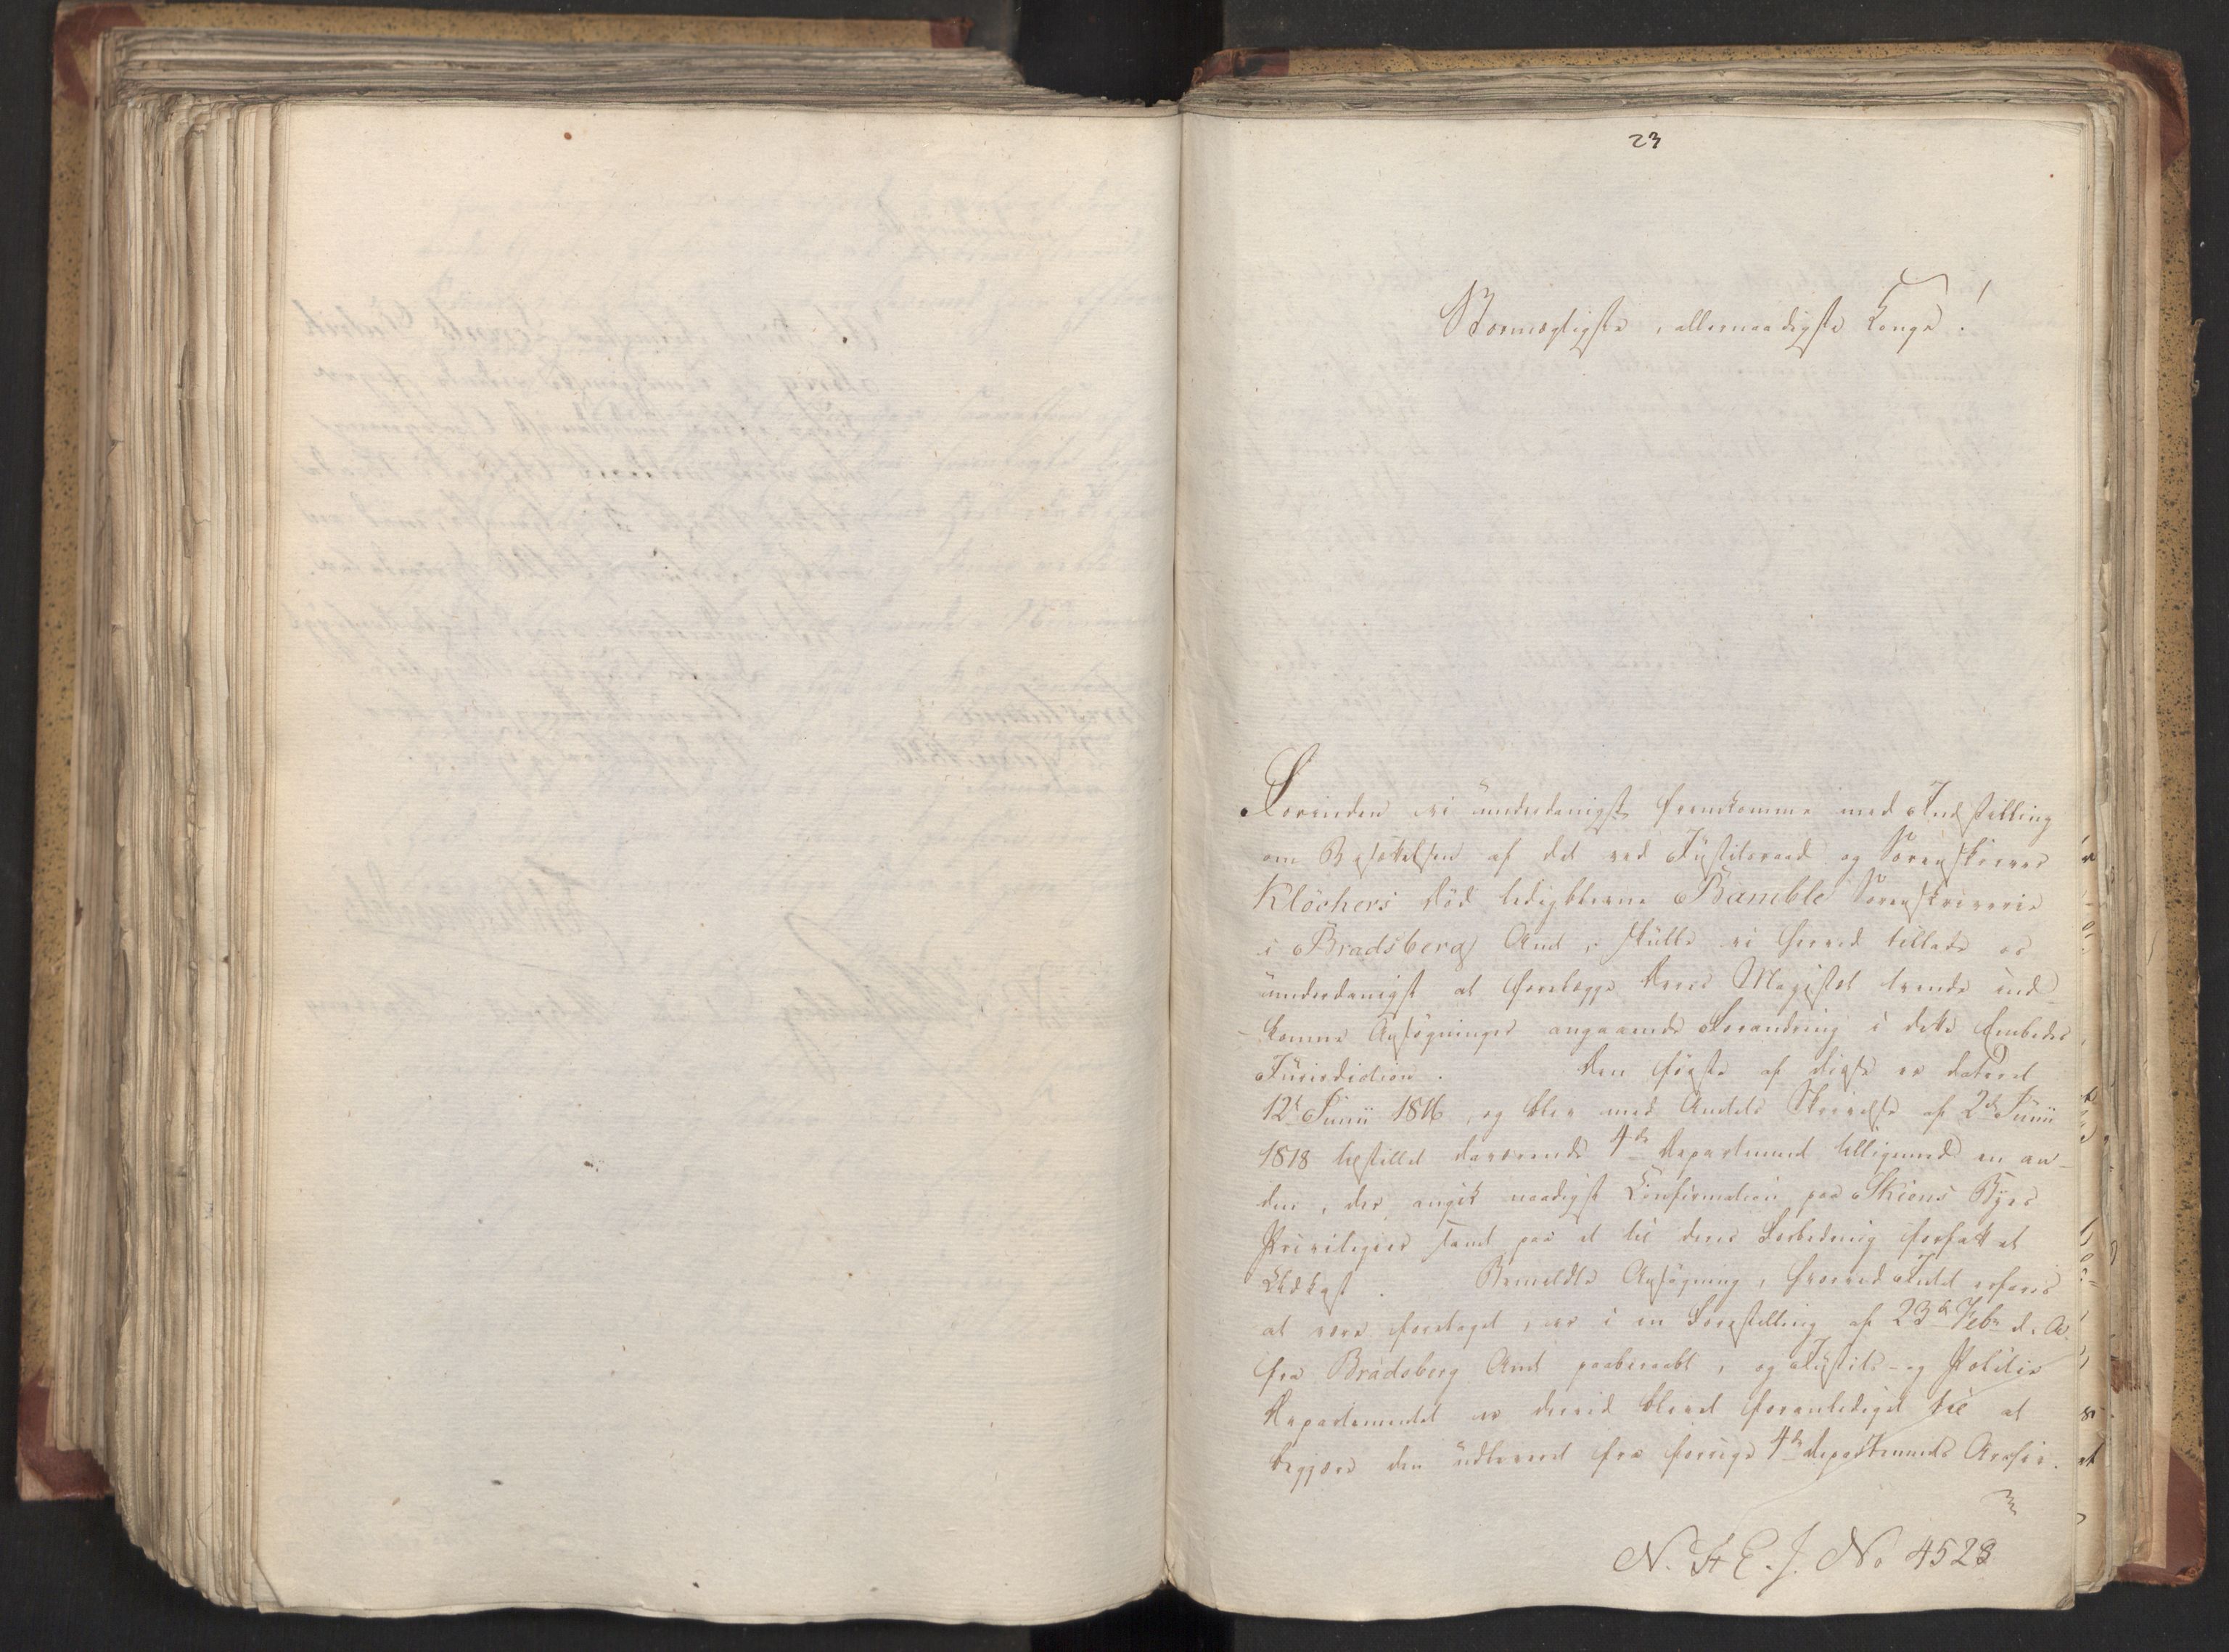 23
Stormægtigste, allernaadigste Konge!
Forinden vi underdanigst fremkomme med Indstilling
om Besættelsen af det ved Justitsraad og Sorenskriver
Klöckers död ledigblevne Bamble Sorenskriverie
i Bradsberg Amt, skulle vi herved tillade os
underdanigst at forelægge Deres Majestæt tvende ind-
komne Ansögninger angaaende Forandring i dette Embedes
Jurisdiction. Den förste af disse er dateret
12te Junii 1816, og blev med Amtets Skrivelse af 2de Junii
1818 tilstillet daværende 4de Departement tilligemed en an-
den, der angik naadigst Confirmation paa Skiens Byes
Privilegier samt paa et til deres Forbedring forfattet
Udkast. Bemeldte Ansögning, hvorved Intet erfares
at være foretaget, er i en Forestilling af 23de Febr d. A.
fra Bradsberg Amt paaberaabt, og Justits- og Politie
Departementet er derved blevet foranlediget til at
begjære den udleveret fra forrige 4de Departements Archiv.
N. St E. J. No 4528